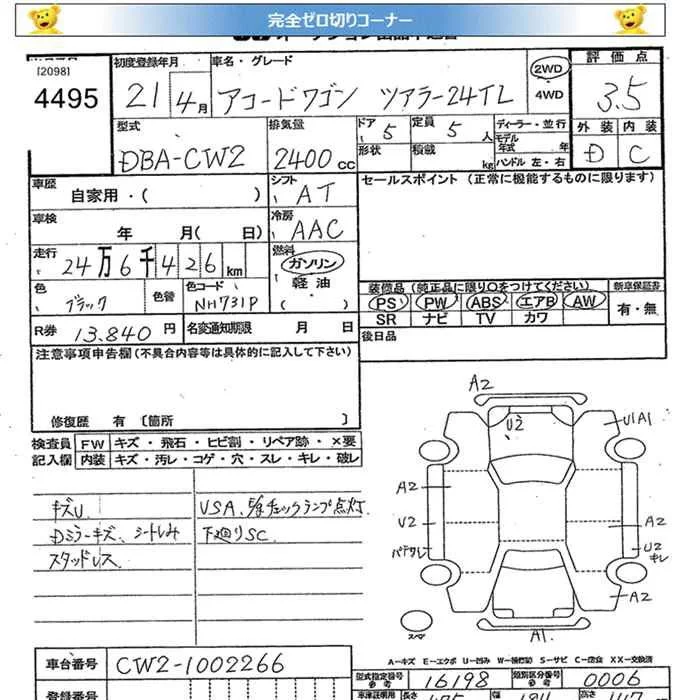 完全ゼロ切りコーナー
[2098]
4495
初度登録年月
21 4月
車名・グレード
アコードワゴン ツアラー24TL
2WD
・
4WD
評価点
3.5
外装 内装
D C
型式
DBA-CW2
排気量
2400cc
ドア 5
定員 5人
ディーラー・並行
モデル年式 年
形状
積載 kg
ハンドル 左・右
車歴
自家用・( )
シフト
AT
セールスポイント (正常に機能するものに限ります)
車検
年 月( 日)
冷房
AAC
走行
24万6千426km
燃料
ガソリン
・
軽油
( )
色
ブラック
色替
色コード
NH731P
装備品(純正品に限り○をつけてください)
PS PW ABS エアB AW
SR ナビ TV カワ
新車保証書
有・無
R券 13.840円
名変通知期限 月 日
後日品
注意事項申告欄(不具合内容等は具体的に記入して下さい)
修復歴 有 〔箇所 〕
検査員記入欄
FW キズ・飛石・ヒビ割・リペア跡・×要
内装 キズ・汚レ・コゲ・穴・スレ・キレ・破レ
キズU
Dミラーキズ、シートしみ
スタッドレス
下廻りSC
A2
U2
U1A1
A2
U2
A2
U2
キレ
A2
A1
スペア
A-キズ E-エクボ U-凹み
S-サビ C-腐食 XX-交換済
車台番号
CW2-1002266
型式指定番号
16198
類別区分番号
0006
登録番号
長さ